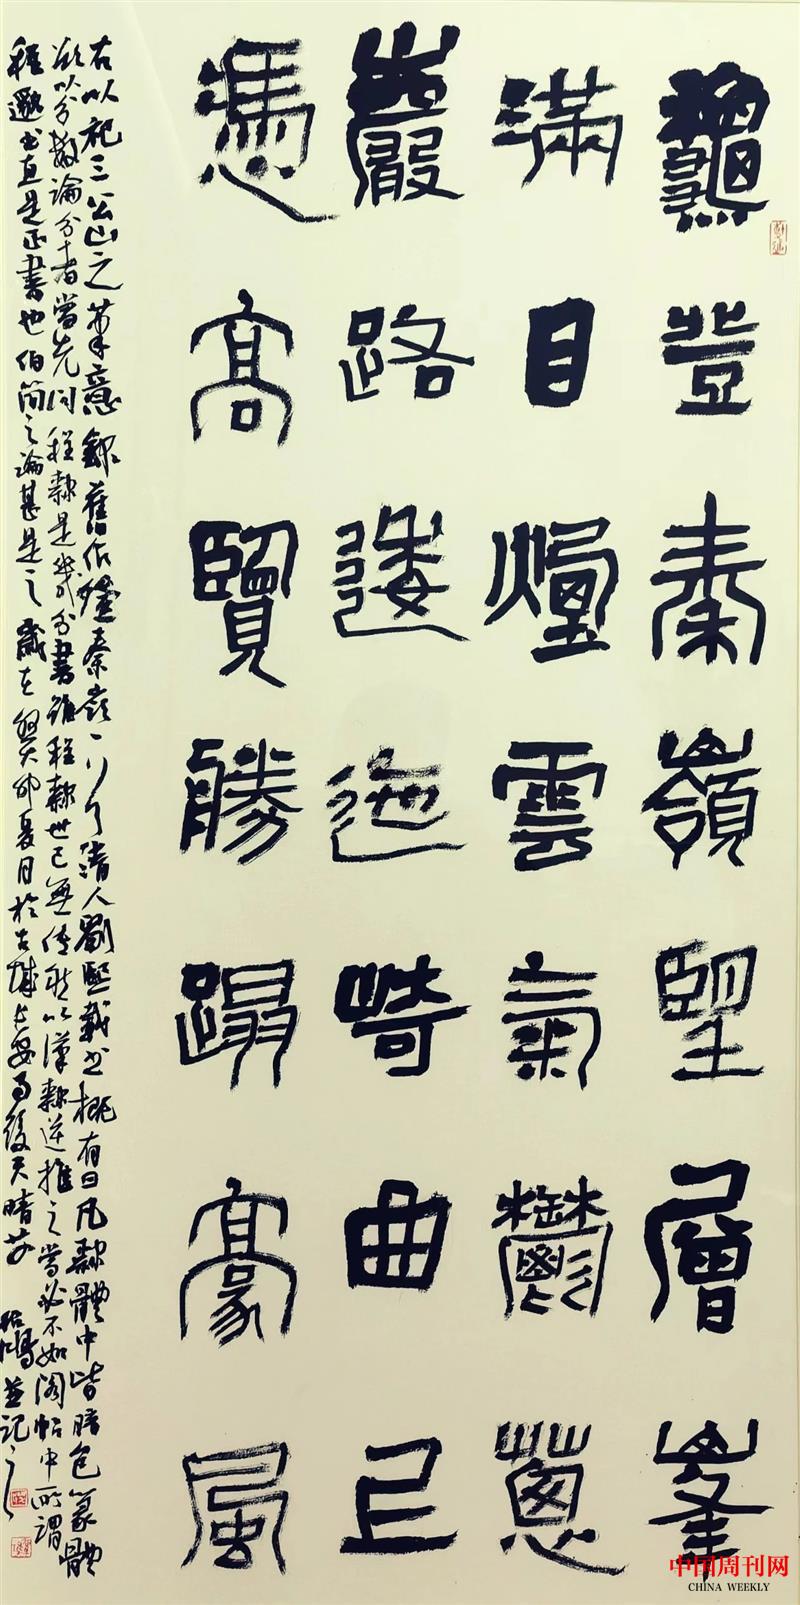 龝登秦嶺望層峯
滿目煙雲氣鬱蔥
巖路逶迤崎曲上
憑高覽勝躡豪風
右以祀三公山之筆意錄舊作登秦嶺清人劉熙載書概有曰凡隸體中皆暗包篆體
欲以分數論分者當先問程隸是幾分書雖程隸世已無傳然以漢隸逆推之當必不如閣帖中所謂
程邈書直是正書也伯簡之論甚是之歲在癸卯夏月於古城長安雨後天晴並記之
中国周刊网
CHINA WEEKLY